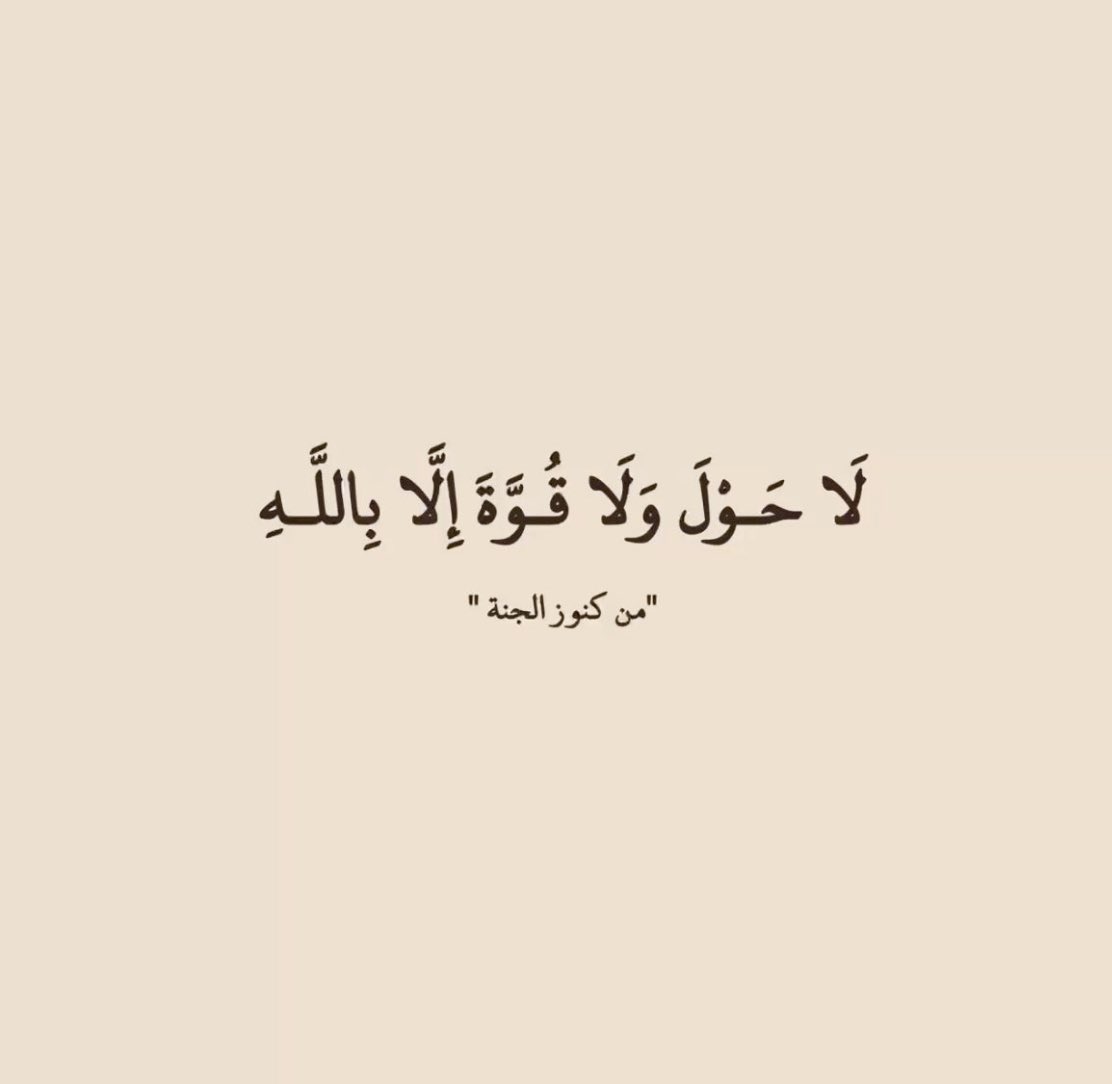 لَا حَـوْلَ وَلَا قُـوَّةَ إِلَّا بِاللَّـهِ
"من كنوز الجنة "